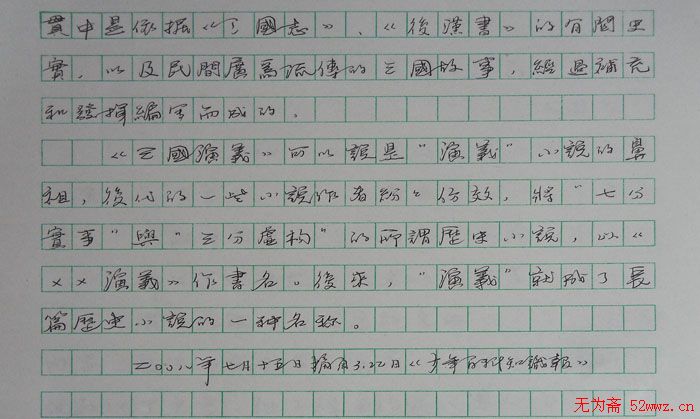 貫中是依据《三國志》、《後漢書》的有関史
實，以及民間廣爲流傳的三國故事，經過補充
和發揮編寫而成的。
《三國演義》可以說是“演義”小說的鼻
祖，後代的一些小說作者紛々仿效，將“七分
實事”與“三分虛构”的所謂歷史小說，以《
××演義》作書名。後來，“演義”就成了長
篇歷史小說的一种名称。
二〇〇八年七月十五日摘自3.22日《少年百科知識報》
无为斋 52wwz.cn